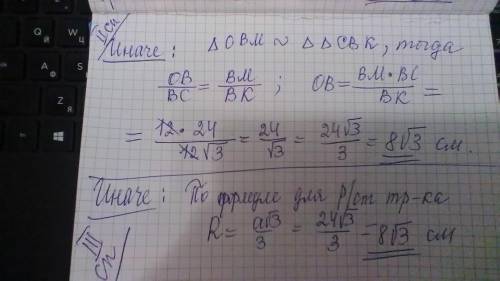 II сп
Иначе: △ OBM ∾ △ △ CBK, тогда
OB/BC = BM/BK ; OB = BM·BC/BK =
= 12·24/12√3 = 24/√3 = 24√3/3 = 8√3 см.
III сп
Иначе: По ф-ле для Р/ст тр-ка
R = a√3/3 = 24√3/3 = 8√3 см